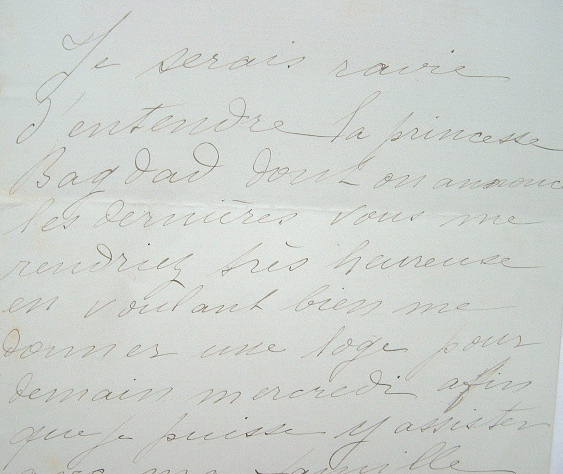 Je serais ravie
d'entendre la princesse
Bagdad dont on annonce
les dernières vous me
rendriez très heureuse
en voulant bien me
donner une loge pour
demain mercredi afin
que je puisse y assister
avec ma famille